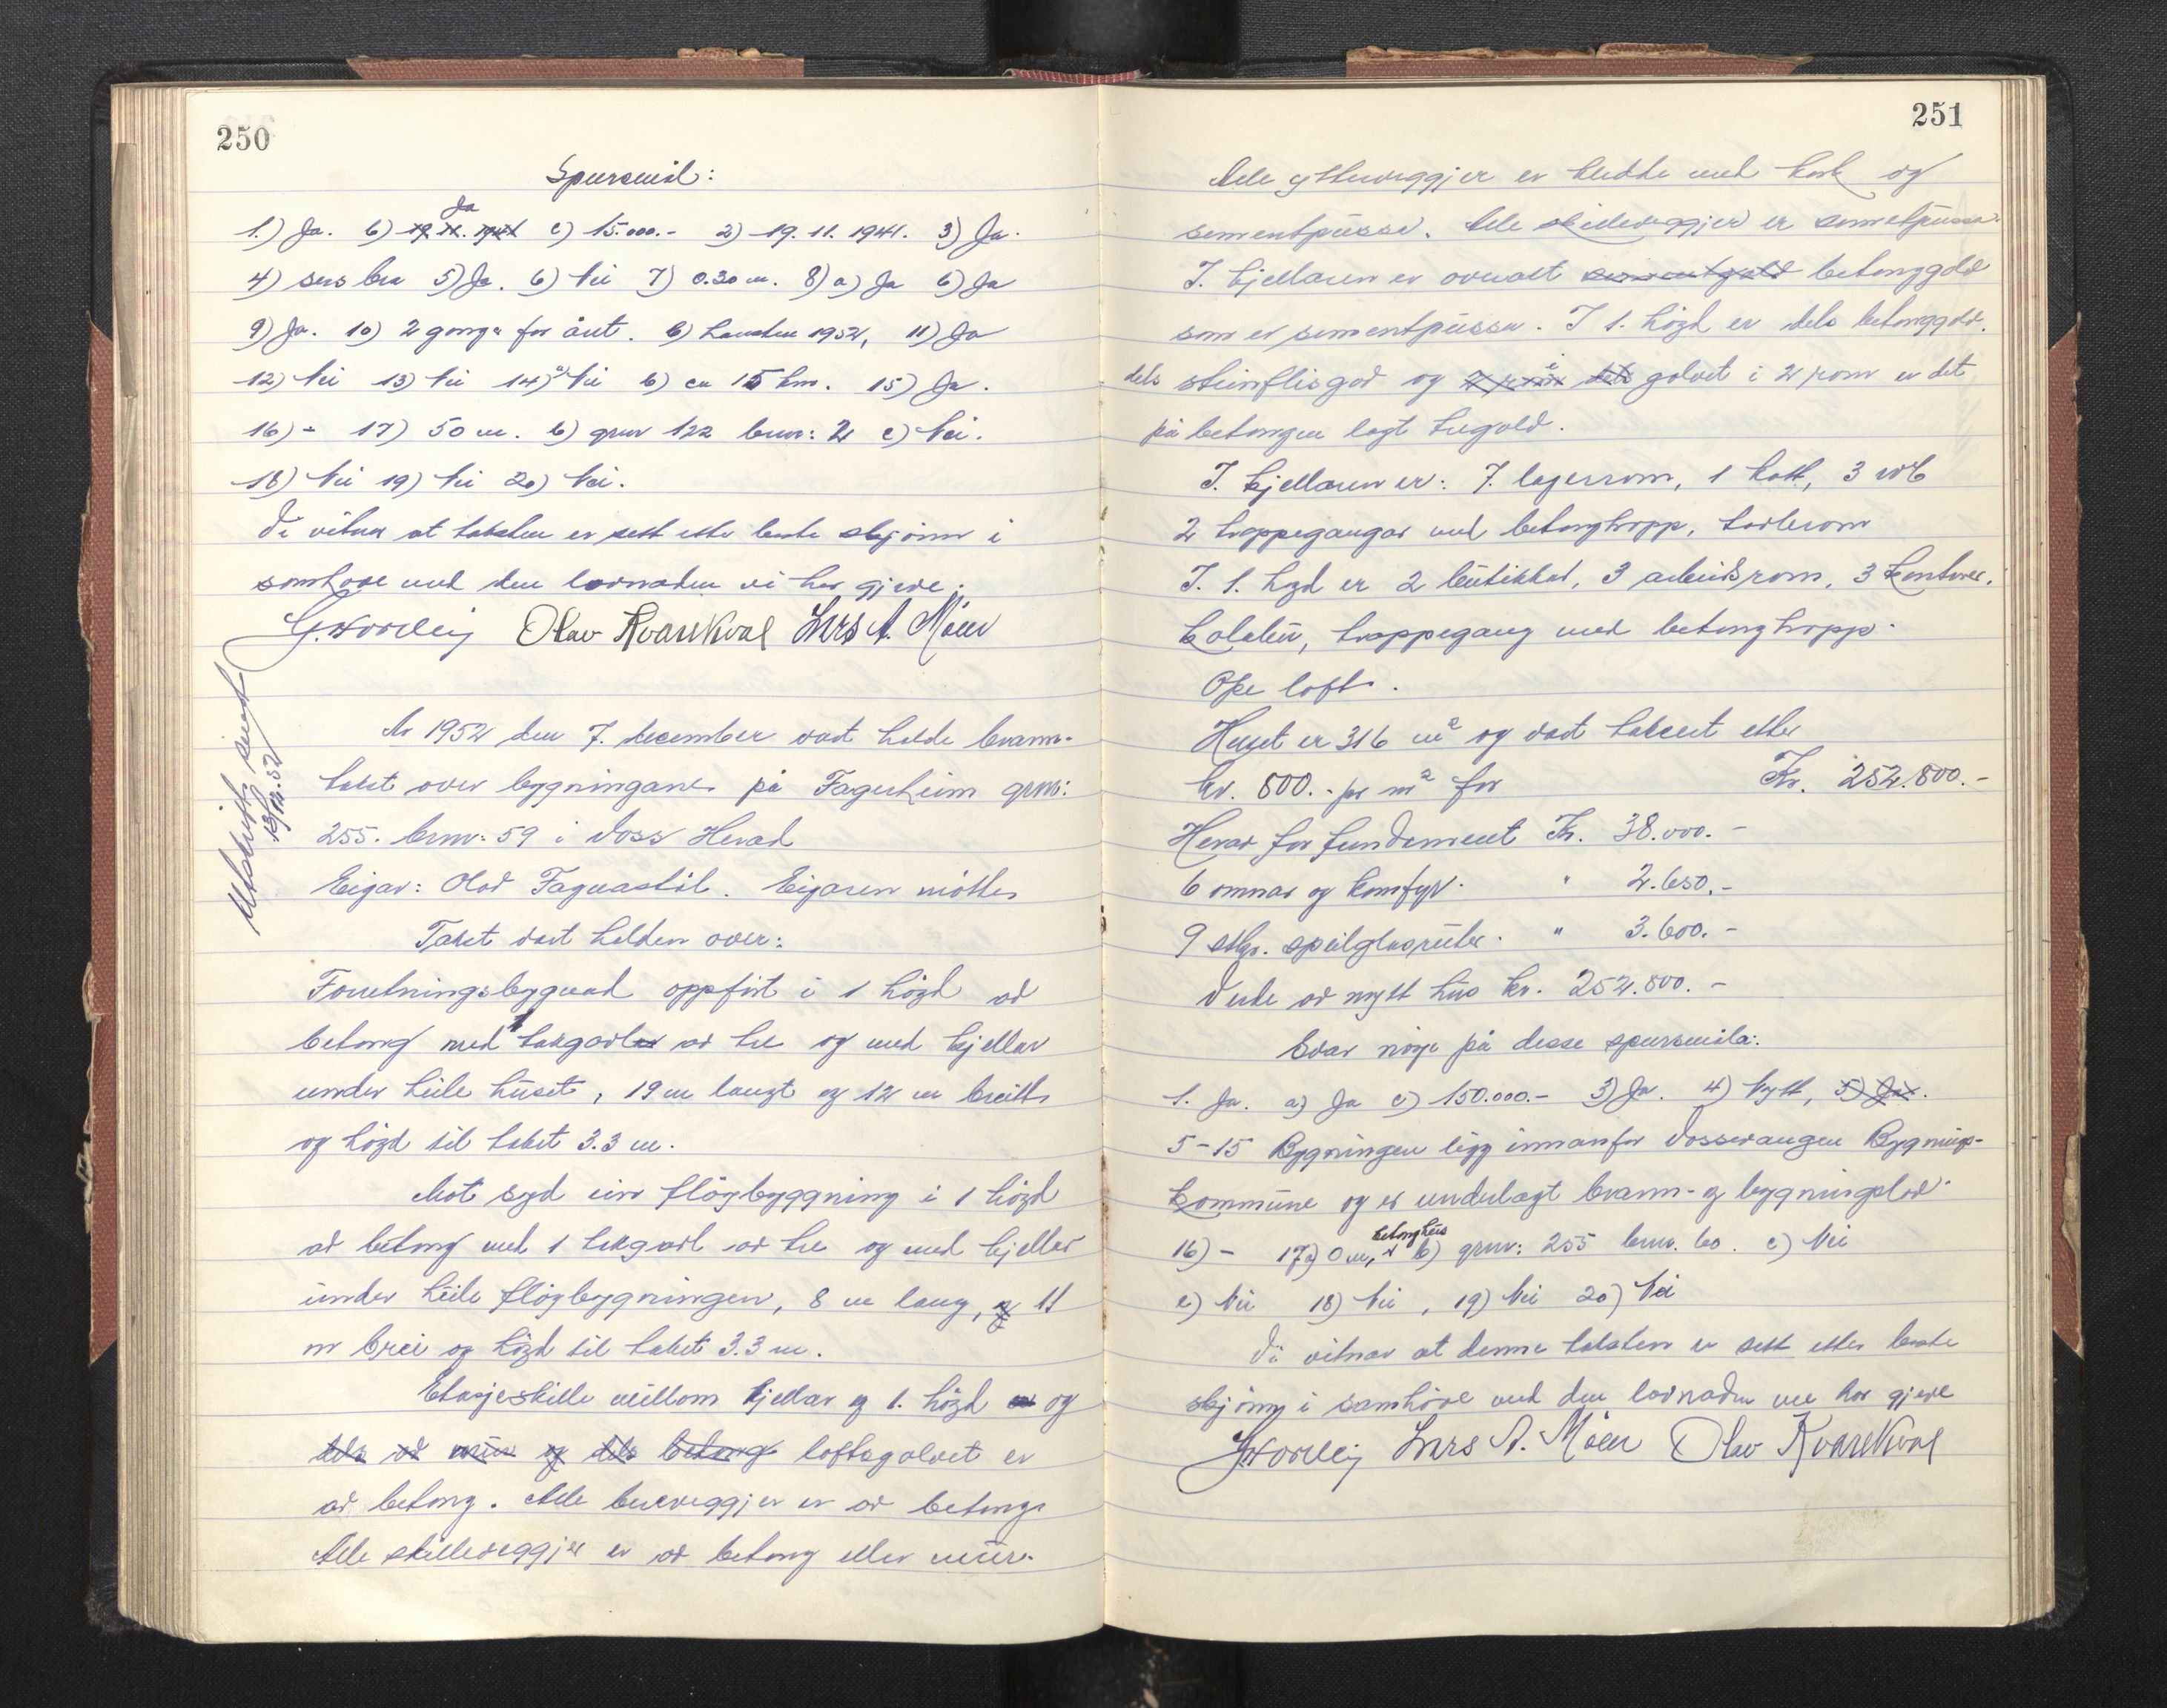 250
Spursmål:
1.) Ja. b) 19. 11. 1941 Ja c) 15.000.- 2) 19. 11. 1941. 3) Ja.
4) sers bra 5) Ja. 6) Nei 7) 0.30 m. 8) a) Ja b) Ja
9) Ja. 10) 2 gonger for året. b) hausten 1952, 11) Ja
12) Nei 13) Nei 14) a) Nei b) ca 15 km. 15) Ja.
16) - 17) 50 m. b) gnr 122 bnr: 2 c) Nei.
18) Nei 19) Nei 20) Nei.
Vi vitnar at taksten er sett etter beste skjønn i
samhøve med den lovnaden vi har gjeve.
Olav Kvarekval Lars A. Møen
Utskrift sendt
13/12.52
År 1952 den 7. desember vart halde brann-
takst over bygningane på Fagerheim gnr:
255. bnr: 59 i Voss Herad
Eigar: Olav Fagnastøl. Eigaren møtte
Takst vart halden over:
Forretningsbygnad oppført i 1 høgd av
betong med 1 takgard av tre og med kjellar
under heile huset, 19 m langt og 12 m breitt
og høgd til taket 3.3 m.
Mot syd ein fløybyggning i 1 høgd
av betong med 1 takgard av tre og med kjellar
under heile fløybygningen, 8 m lang, og 11
m brei og høgd til taket 3.3 m.
Etasjeskille millom kjellar og 1. høgd og
dels av mur og dels betong loftsgolvet er
av betong. Alle bereveggjer er av betong.
Alle skilleveggjer er av betong eller mur.
251
Alle ytterveggjer er kledde med kork og
sementpussa. Alle skilleveggjer er sementpussa.
I. kjellaren er overalt sementgolv betonggolv
som er sementpussa. I 1. høgd er dels betonggolv.
dels steinflisgolv og golvet i 2 rom er det
på betongen lagt tregolv.
I. kjellaren er: 7. lagerrom, 1 kott, 3 WC
2 trappegangar med betongtrapp,
I. 1. hgd er 2 butikkar, 3 arbeidsrom, 3 kontorer.
trappegang med betongtrapp.
Ope loft.
Huset er 316 m² og vart taksert etter
kr. 800.- pr m² for Kr. 252.800.-
Herav for fundament Kr. 38.000.-
6 omnar og komfyr. " 2.650.-
9 stkr. speilglasruter. " 3.600.-
Verde av nytt hus kr. 252.800.-
Svar nøye på desse spursmåla:
1. Ja. a) Ja c) 150.000.- 3) Ja. 4) Nytt, 5) Ja.
5-15 Bygningen ligg innanfor Vossevangen Bygnings-
kommune og er underlagt brann- og bygningslov.
16) - 17a) 0 m, betonghus b) gnr: 255 bnr. 60. c) Nei
e) Nei 18) Nei, 19) Nei 20) Nei
Vi vitnar at denne taksten er sett etter beste
skjønn i samhøve med den lovnaden me har gjeve
Lars A. Møen Olav Kvarekval